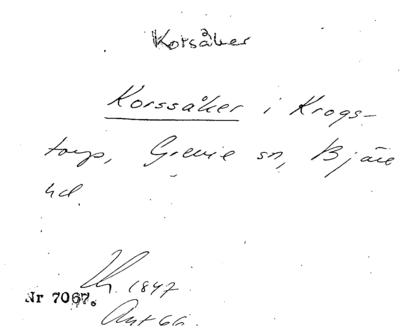 Korsåker
Korssåker i Krogs-
torp, Grevie sn, Bjäre
hd.
1847
Nr 7067.
Ant 66.